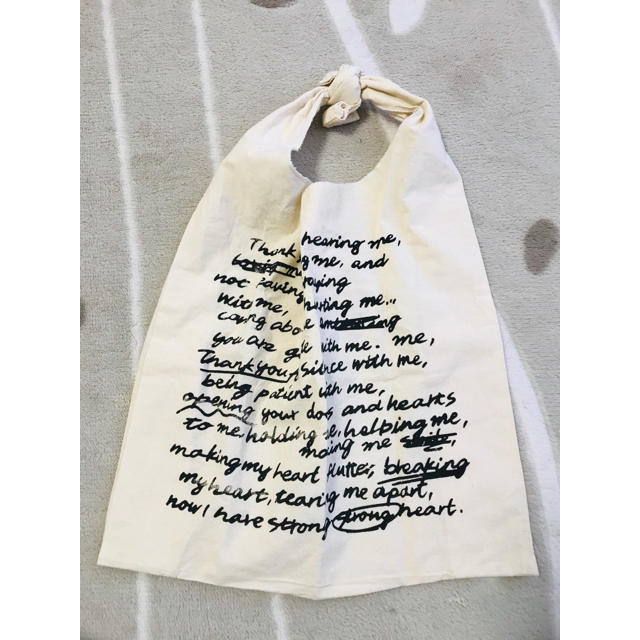 Thank hearing me,
me, and
not saying
with me, hurting me...
caring about
you are with me. me,
Thank you, silence with me,
being patient with me,
opening your doors and hearts
to me, holding me, helping me,
making me
making my heart flutter, breaking
my heart, tearing me apart,
now I have strong strong heart.